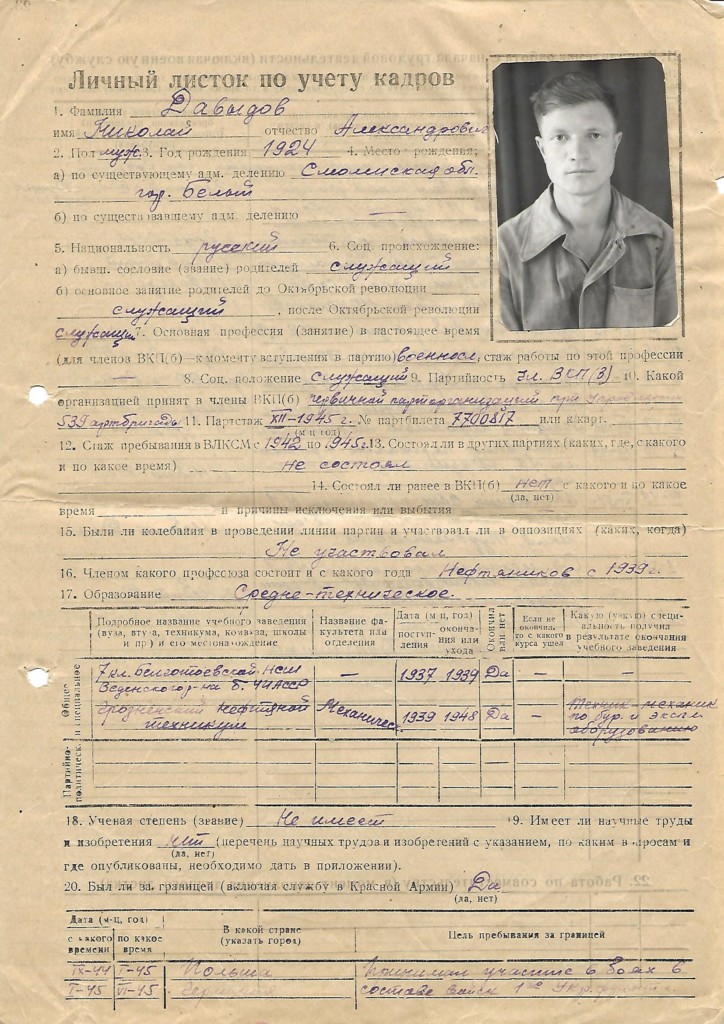 Личный листок по учету кадров
1. Фамилия Давыдов
имя Николай отчество Александрович
2. Пол муж. 3. Год рождения 1924 4. Место рождения:
а) по существующему адм. делению Смоленская обл.
гор. Белый
б) по существовавшему адм. делению —
5. Национальность русский 6. Соц. происхождение:
а) бывш. сословие (звание) родителей служащий
б) основное занятие родителей до Октябрьской революции
служащий, после Октябрьской революции
служащий 7. Основная профессия (занятие) в настоящее время
(для членов ВКП(б)—к моменту вступления в партию) военносл, стаж работы по этой профессии
— 8. Соц. положение служащий 9. Партийность чл. ВКП(б) 10. Какой
организацией принят в члены ВКП(б) первичной парторганизацией при
539 артбригады 11. Партстаж XII-1945 г. № партбилета 7700817 или к/карт.
(м-ц год)
12. Стаж пребывания в ВЛКСМ с 1942 по 1945 г. 13. Состоял ли в других партиях (каких, где, с какого
и по какое время) не состоял
14. Состоял ли ранее в ВКП(б) нет с какого и по какое
(да, нет)
время и причины исключения или выбытия
15. Были ли колебания в проведении линии партии и участвовал ли в оппозициях (каких, когда)
Не участвовал
16. Членом какого профсоюза состоит и с какого года Нефтяников с 1939 г.
17. Образование Средне-техническое.
Подробное название учебного заведения (вуза, втуза, техникума, комвуза, школы и пр) и его местонахождение Название факультета или отделения Дата (м-ц, год) поступления окончания или ухода Окончил или нет Если не окончил, то с какого курса ушел Какую (узкую) специальность получил в результате окончания учебного заведения
Общее и специальное
7 кл. НСШ — 1937 1939 Да — —
Веденского р-на б. ЧИАССР
Грозненский Нефтяной Механичес. 1939 1948 Да — Техник-механик
техникум по бур. и экспл.
оборудованию
Партийно-политическ.
18. Ученая степень (звание) Не имеет 19. Имеет ли научные труды
и изобретения нет (перечень научных трудов и изобретений с указанием, по каким вопросам и
(да, нет)
где опубликованы, необходимо дать в приложении).
20. Был ли за границей (включая службу в Красной Армии) Да
(да, нет)
Дата (м-ц, год) В какой стране (указать город) Цель пребывания за границей
с какого времени по какое время
IX-44 I-45 Польша Принимал участие в боях в
I-45 VI-45 Германия составе войск 1го Укр. фронта.